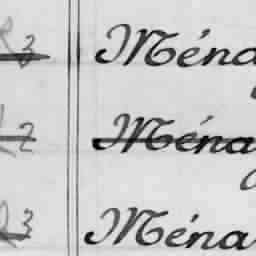 R3 Ména
R2 Ména
R3 Ména